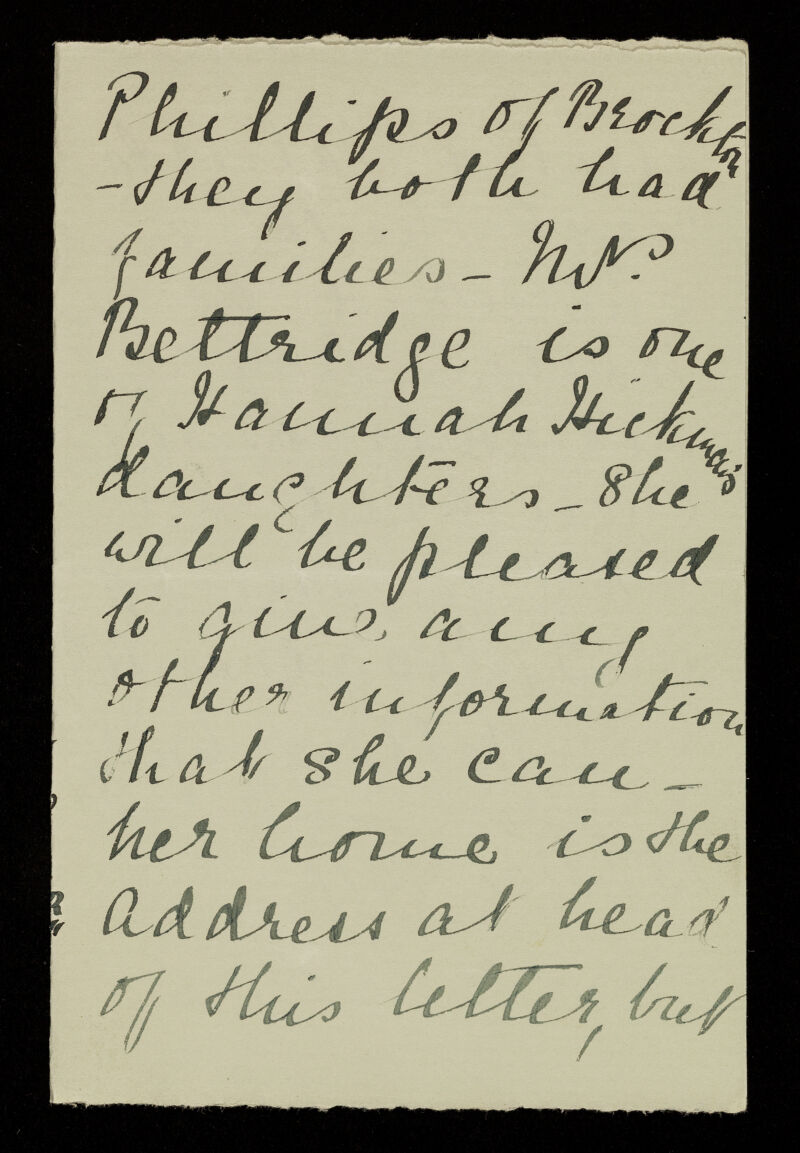 Phillips of Brockton
- they both had
families - Mrs.
Bettridge is one
of Hannah Hickman's
daughters - She
will be pleased
to give any
other information
that she can -
her home is the
address at head
of this letter, but